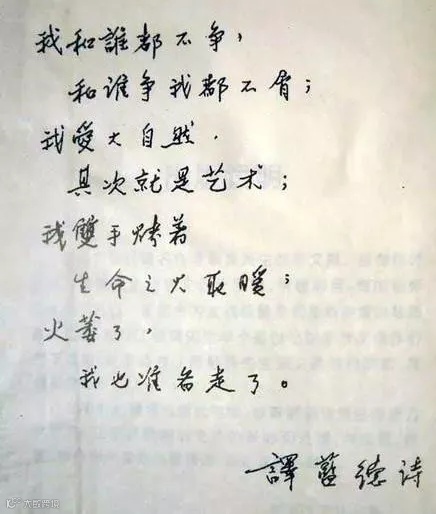 我和誰都不争，
和谁争我都不屑；
我愛大自然，
其次就是艺术；
我雙手烤着
生命之火取暖；
火萎了，
我也准备走了。
譯蓝德诗